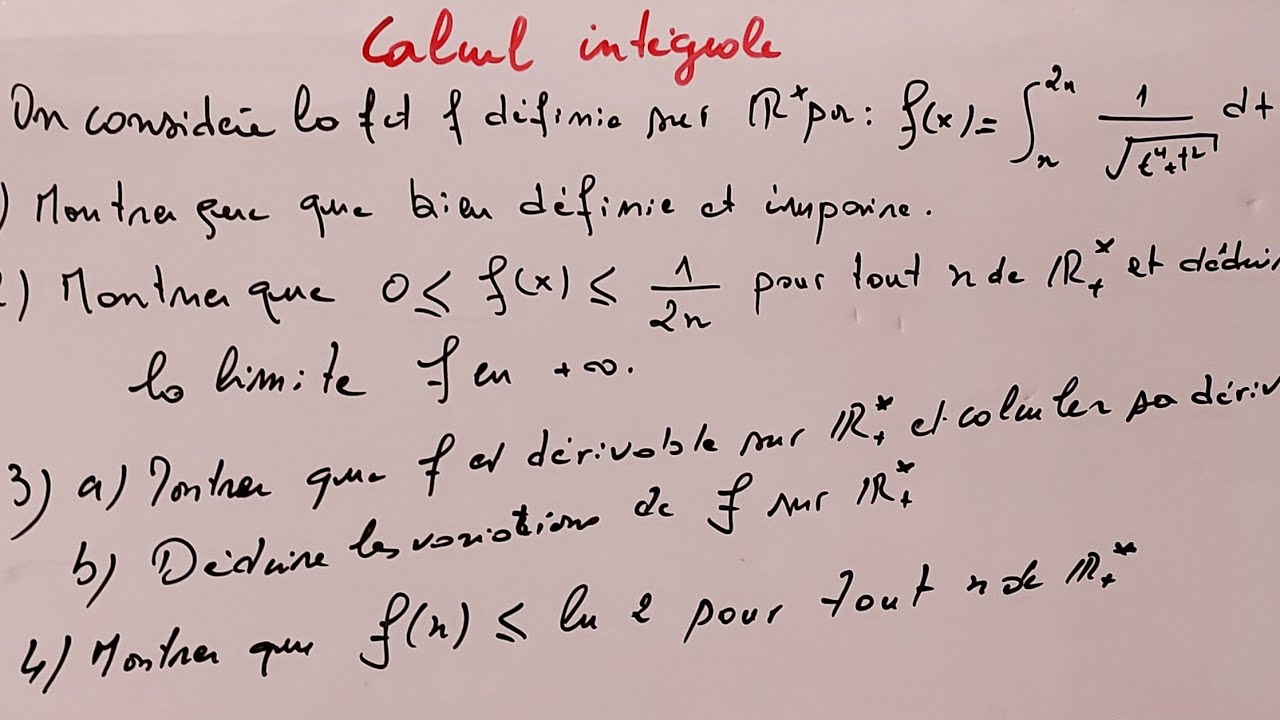 Calcul intégrale
On considère la fct f définie sur ℝ* par : f(x) = ∫_x^{2x} 1/√(t⁴+t²) dt
) Montrer que que bien définie et impaire.
2) Montrer que 0 ≤ f(x) ≤ 1/2x pour tout x de ℝ₊* et dédui
la limite f en +∞.
3) a) Montrer que f est dérivable sur ℝ₊* et calculer sa dériv
b) Déduire les variations de f sur ℝ₊*
4) Montrer que f(x) ≤ ln 2 pour tout x de ℝ₊*